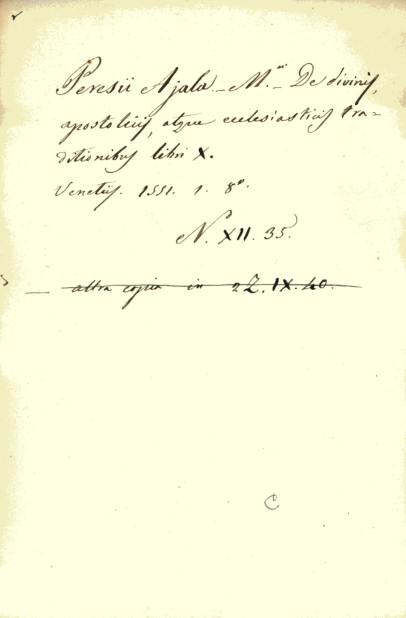 Peresii Ajala - M.ni - De divinis,
apostolicis, atque ecclesiasticis tra=
ditionibus libri X.
Venetiis. 1551. 1. 8°.
N. XII. 35.
— altra copia in Z. IX. 40.
C